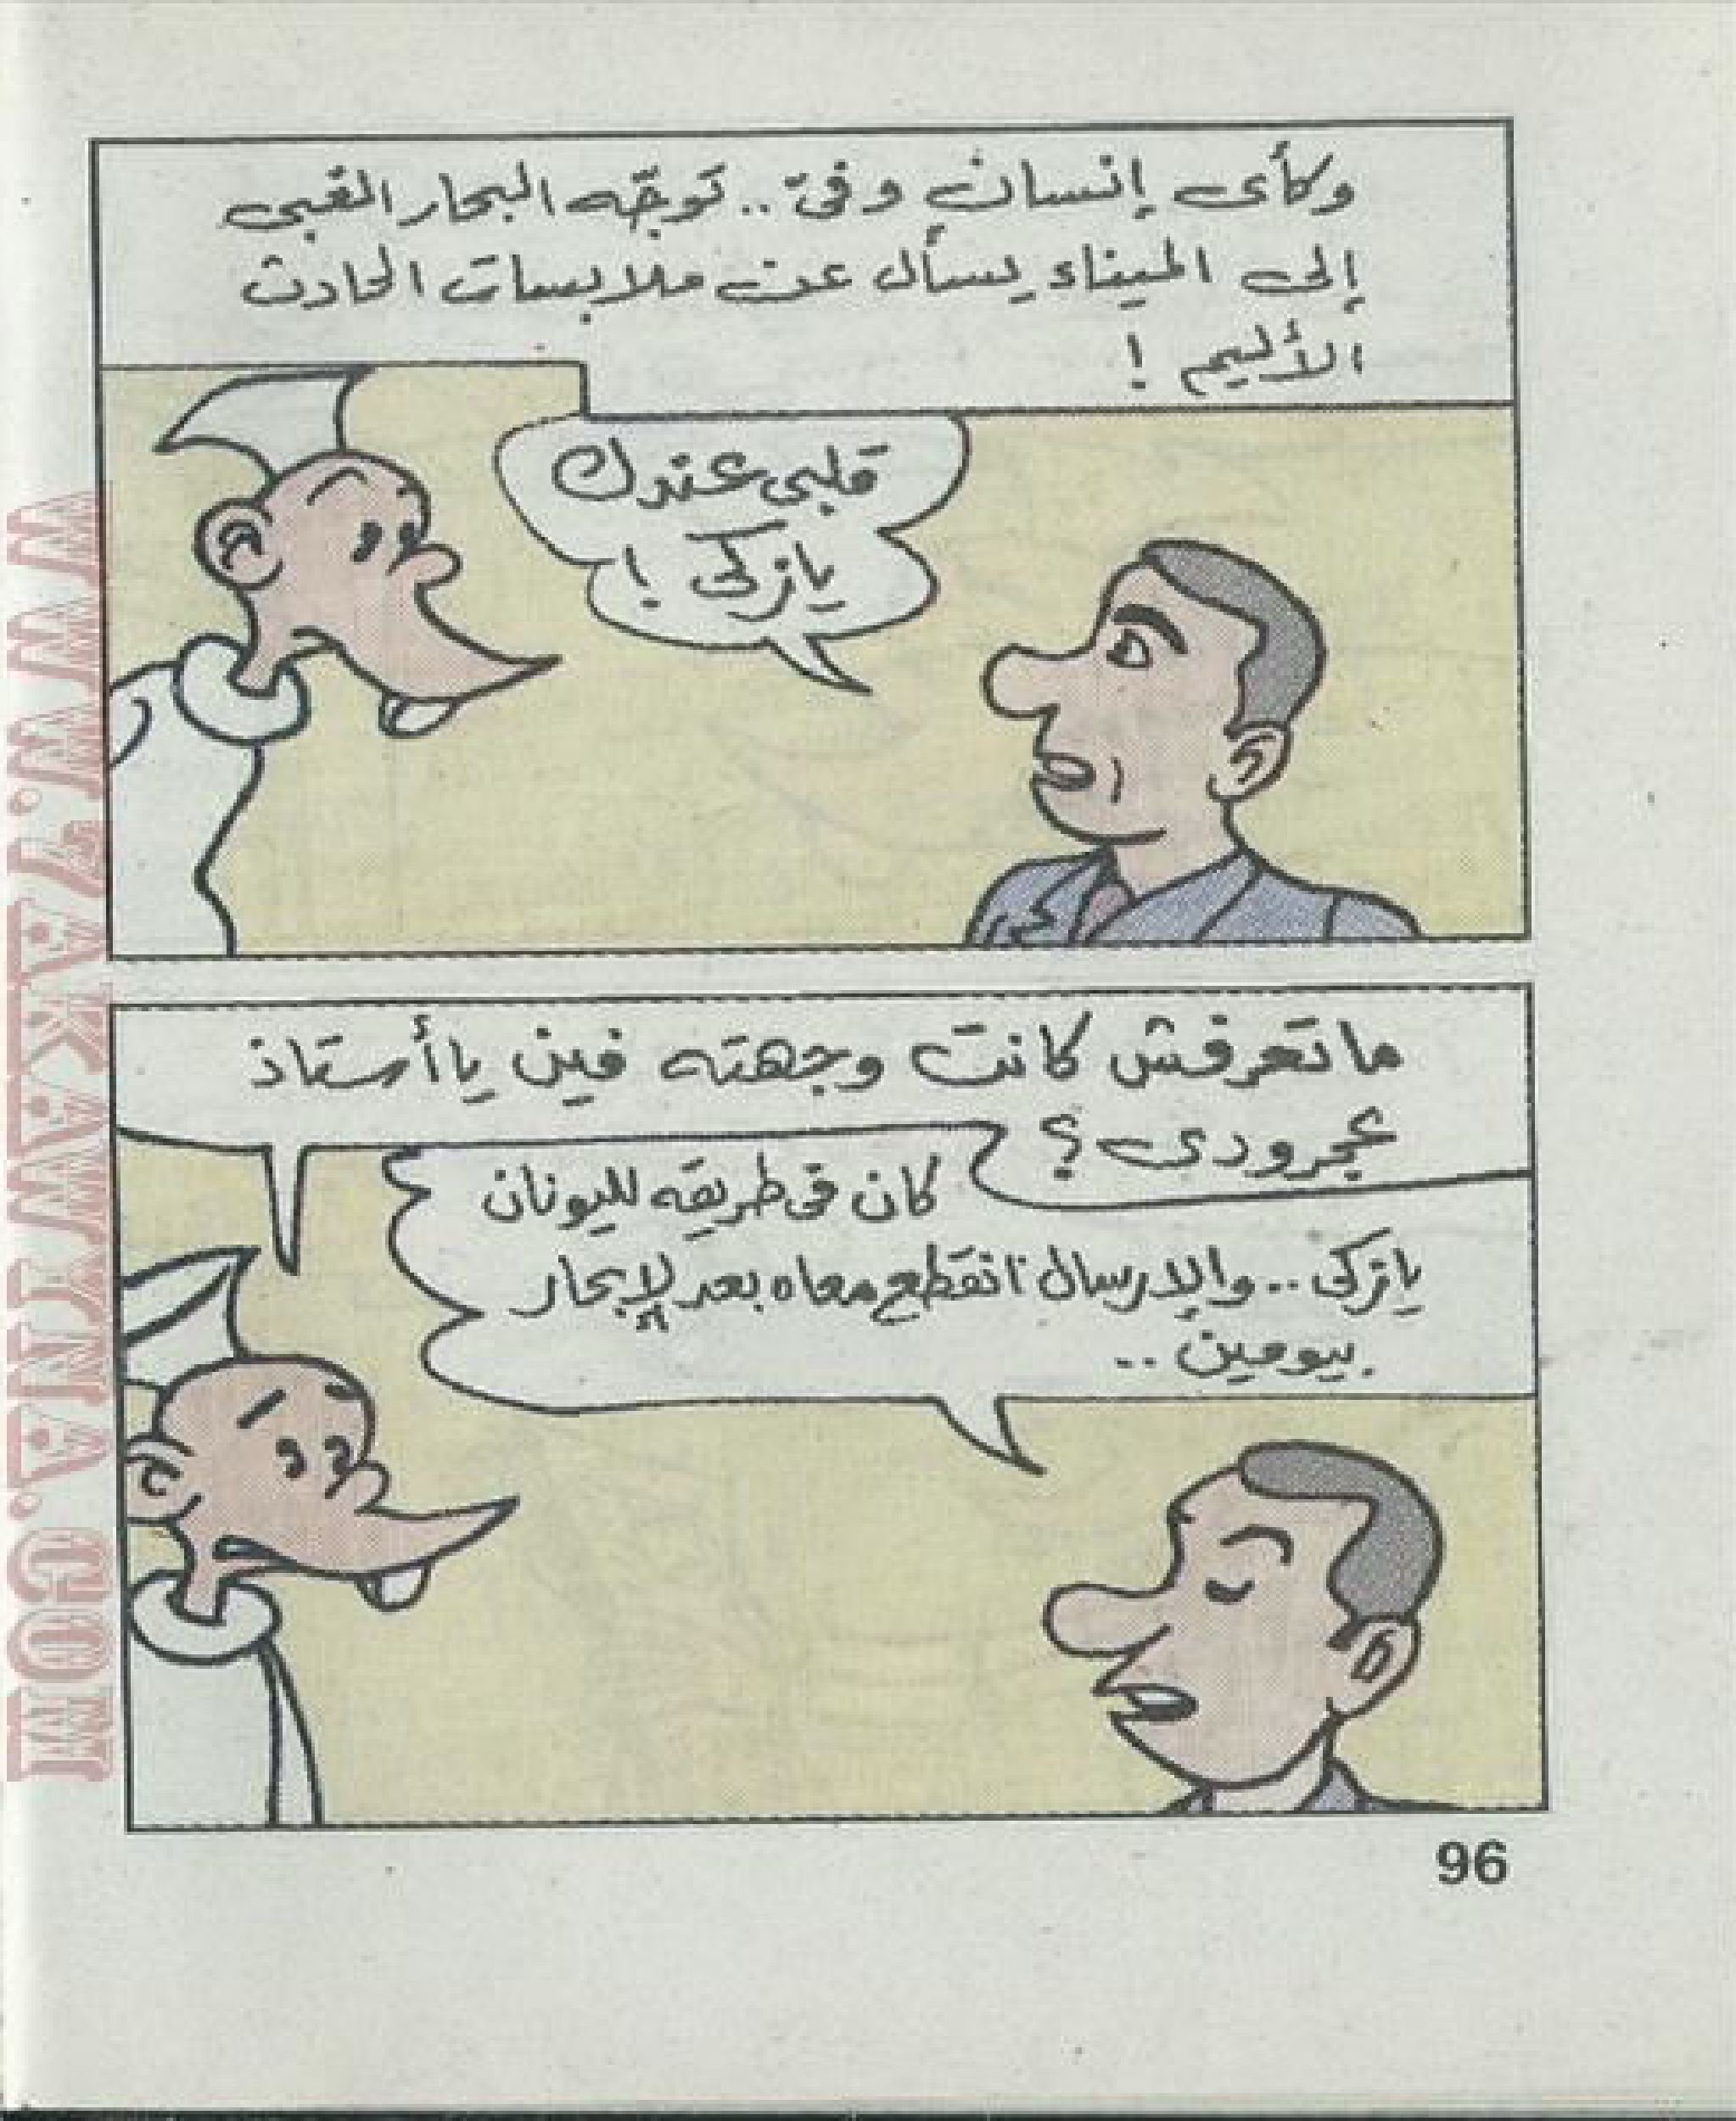 وكأى إنسان وفىّ.. توجّه البحار الغبى
إلى الميناء يسأل عن ملابسات الحادث
الأليم !
قلبى عندك
يازكى !
ماتعرفش كانت وجهته فين ياأستاذ
عجرودى؟
كان فى طريقه لليونان
يازكى.. والإرسال انقطع معاه بعد لإبحار
بيومين ..
96
WWW.7AKAWINA.COM